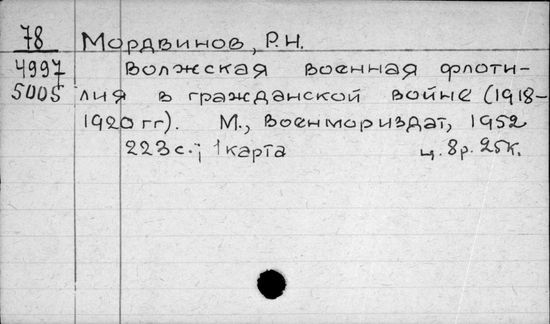 78 Мордвинов, Р.Н.
4997 Волжская военная флоти-
5005 лия в гражданской войне (1918-
1920 гг). М., Военмориздат, 1952
223 с.; 1 карта ц. 8р. 25к.